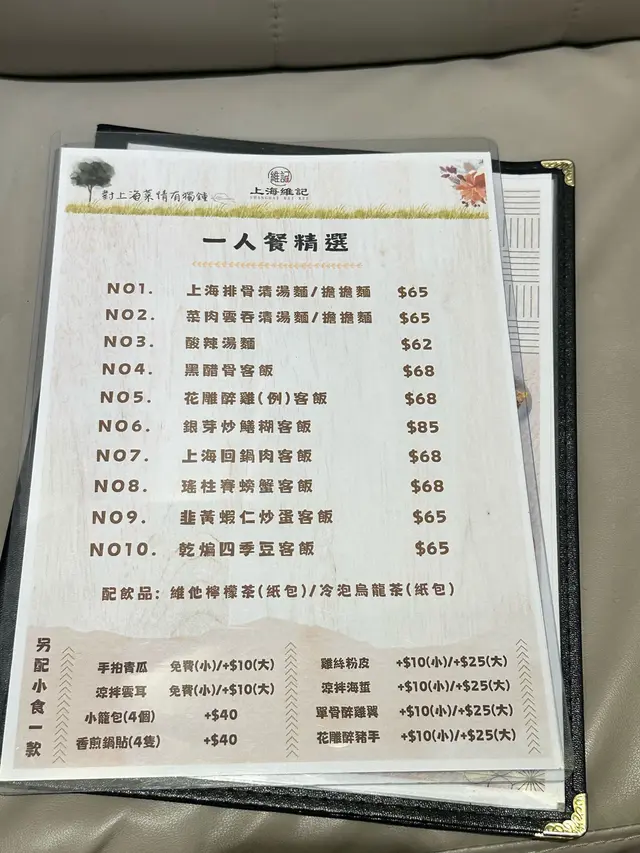 對上海菜情有獨鍾
維記
上海維記
SHANGHAI WAI KEE
一人餐精選
NO1. 上海排骨清湯麵/擔擔麵 $65
NO2. 菜肉雲吞清湯麵/擔擔麵 $65
NO3. 酸辣湯麵 $62
NO4. 黑醋骨客飯 $68
NO5. 花雕醉雞(例)客飯 $68
NO6. 銀芽炒鱔糊客飯 $85
NO7. 上海回鍋肉客飯 $68
NO8. 瑤柱賽螃蟹客飯 $68
NO9. 韭黃蝦仁炒蛋客飯 $65
NO10. 乾煸四季豆客飯 $65
配飲品: 維他檸檬茶(紙包)/冷泡烏龍茶(紙包)
另配小食一款
手拍青瓜 免費(小)/+$10(大)
涼拌雲耳 免費(小)/+$10(大)
小籠包(4個) +$40
香煎鍋貼(4隻) +$40
雞絲粉皮 +$10(小)/+$25(大)
涼拌海蜇 +$10(小)/+$25(大)
單骨醉雞翼 +$10(小)/+$25(大)
花雕醉豬手 +$10(小)/+$25(大)